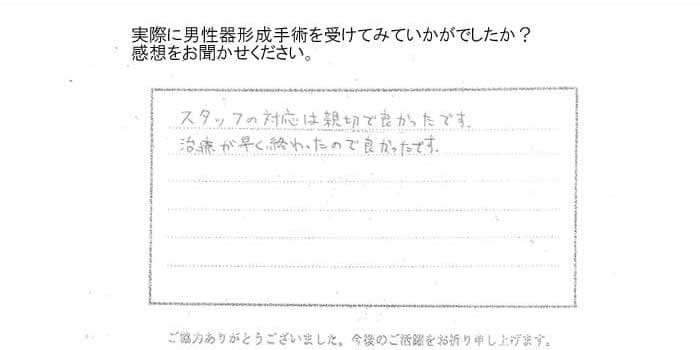 実際に男性器形成手術を受けてみていかがでしたか？
感想をお聞かせください。
スタッフの対応は親切で良かったです。
治療が早く終わったので良かったです。
ご協力ありがとうございました。今後のご活躍をお祈り申し上げます。